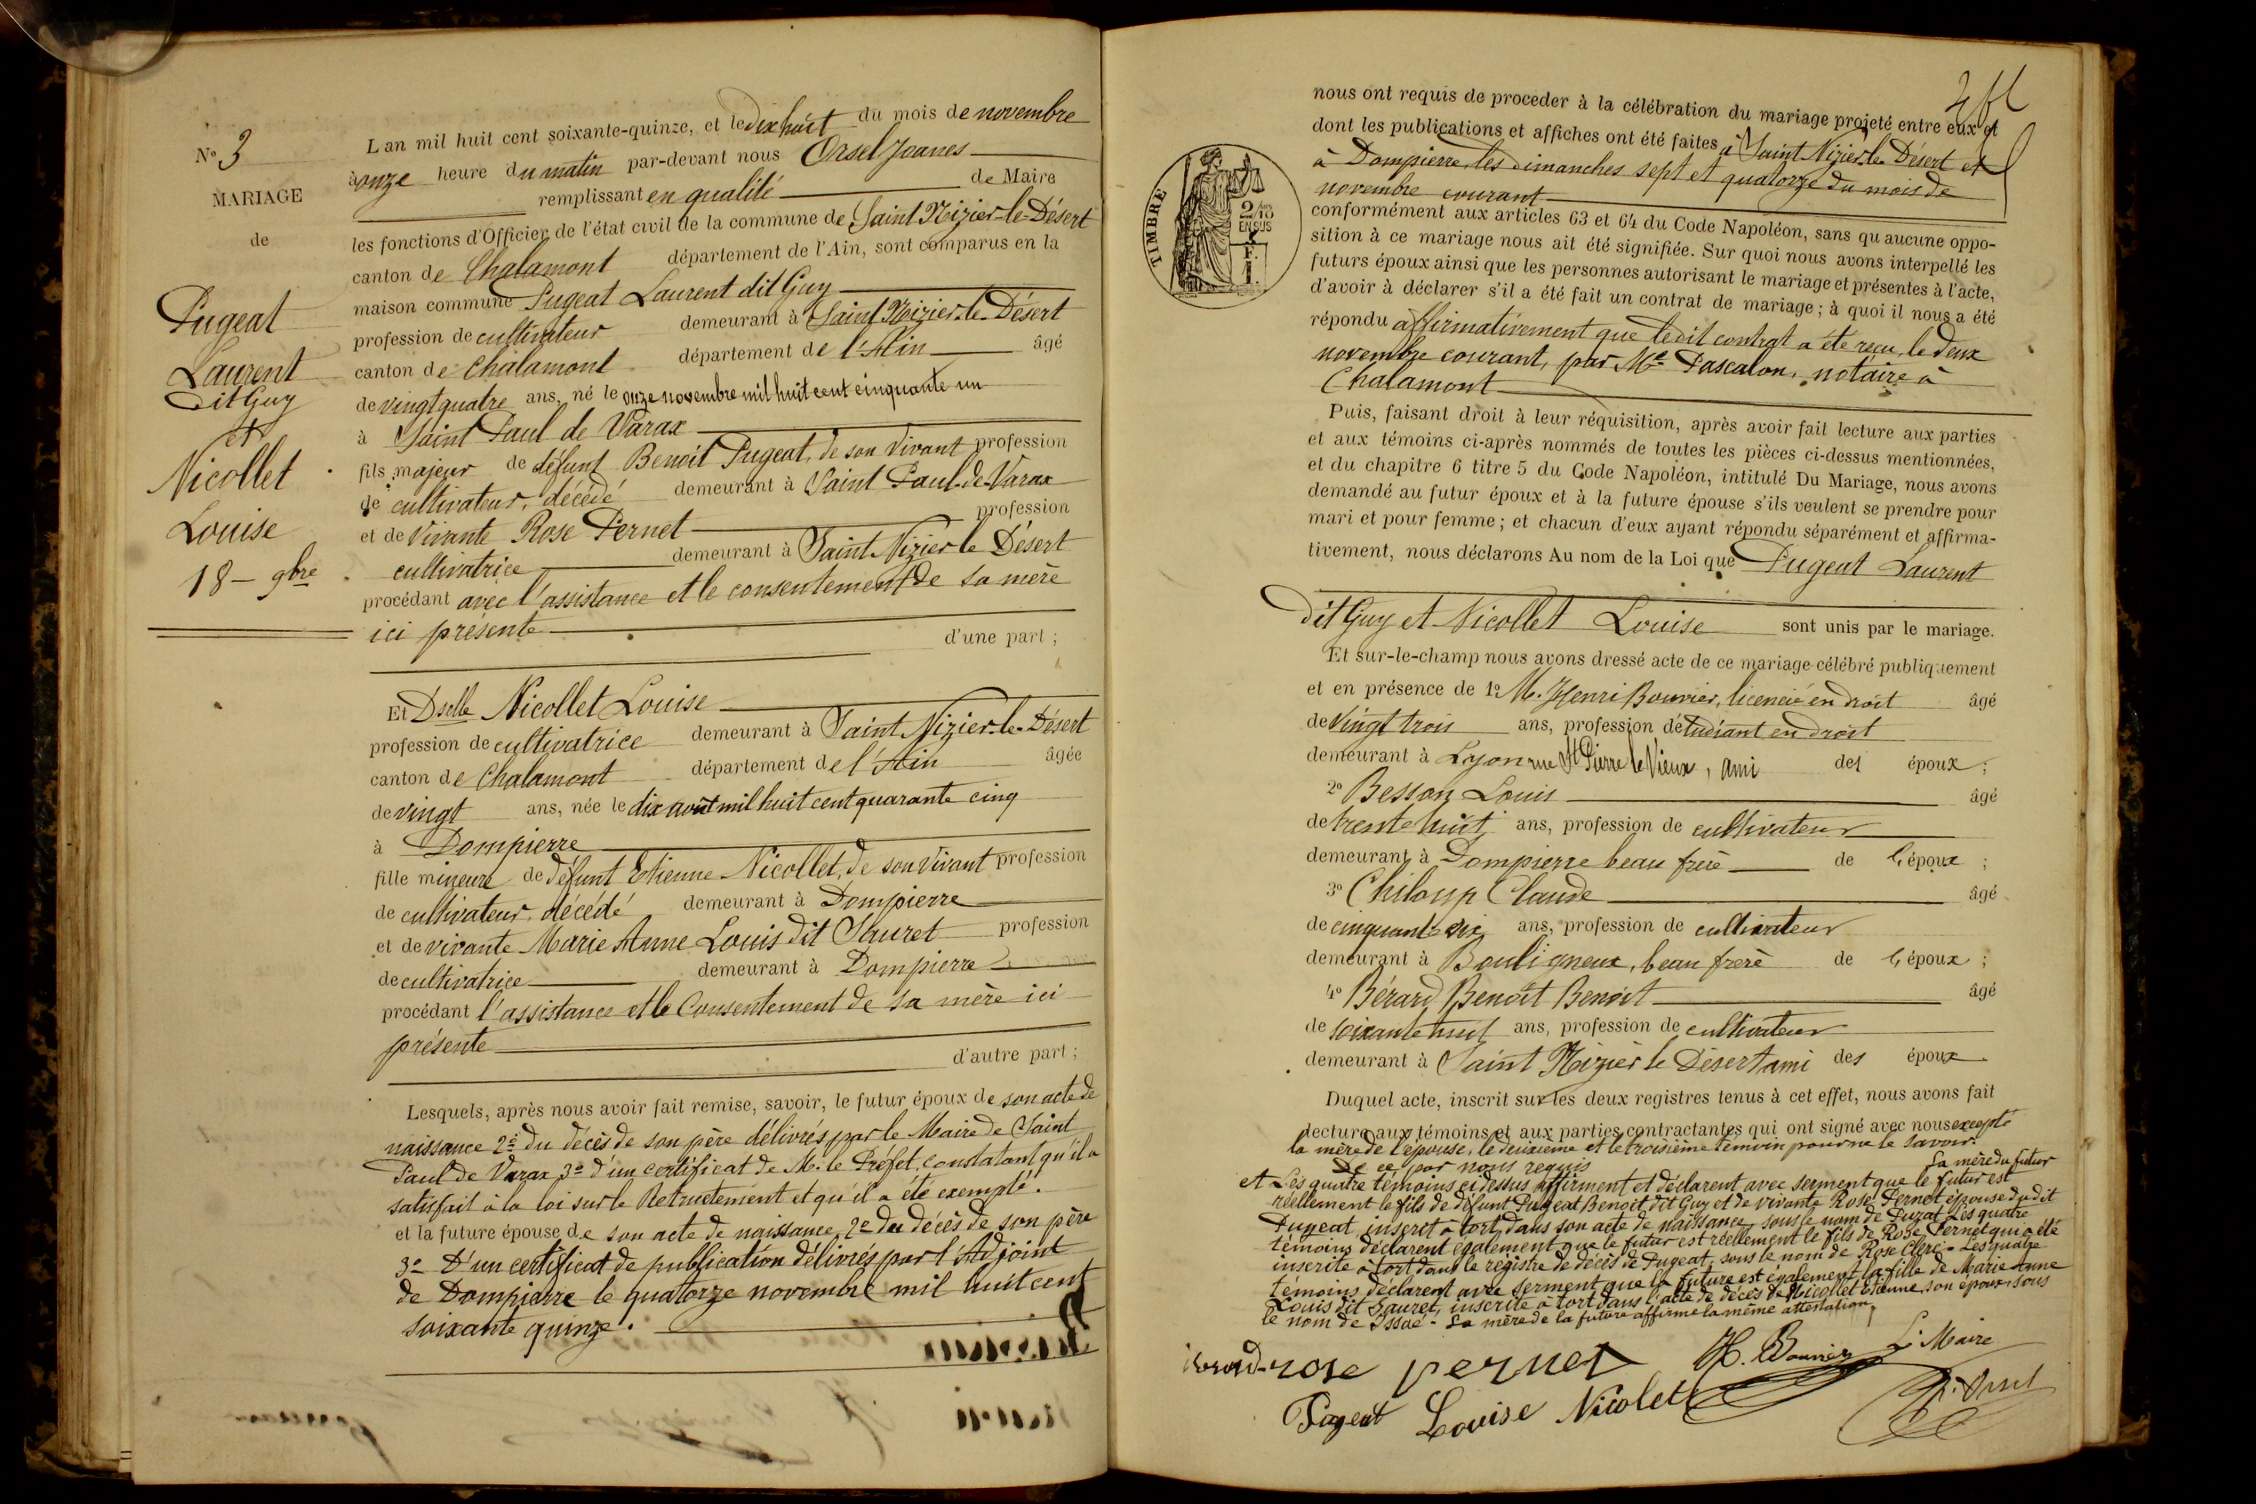 Nº 3
MARIAGE
de
Pugeat
Laurent
dit Guy
et
Nicollet
Louise
18 - 9bre
L an mil huit cent soixante-quinze, et le dix huit du mois de novembre
à onze heure du matin par-devant nous Orsel Joanes
remplissant en qualité de Maire
les fonctions d'Officier de l'état civil de la commune de Saint Nizier-le-Désert
canton de Chalamont département de l'Ain, sont comparus en la
maison commune Pugeat Laurent dit Guy
profession de cultivateur demeurant à Saint Nizier-le-Désert
canton de Chalamont département de l'Ain âgé
de vingt quatre ans, né le onze novembre mil huit cent cinquante un
à Saint Paul de Varax
fils majeur de défunt Benoit Pugeat, de son vivant profession
de cultivateur, décédé demeurant à Saint Paul-de-Varax
et de vivante Rose Pernet profession
cultivatrice demeurant à Saint Nizier le Désert
procédant avec l'assistance et le consentement de sa mère
ici présente
d'une part ;
Et Dselle Nicollet Louise
profession de cultivatrice demeurant à Saint Nizier-le-Désert
canton de Chalamont département de l'Ain âgée
de vingt ans, née le dix août mil huit cent quarante cinq
à Dompierre
fille mineure de défunt Etienne Nicollet, de son vivant profession
de cultivateur, décédé demeurant à Dompierre
et de vivante Marie Anne Louis dit Sauret profession
de cultivatrice demeurant à Dompierre
procédant l'assistance et le Consentement de sa mère ici
présente
d'autre part ;
Lesquels, après nous avoir fait remise, savoir, le futur époux de son acte de
naissance 2º du décès de son père délivrés par le Maire de Saint
Paul de Varax 3º d'un certificat de M. le Préfet, constatant qu'il a
satisfait à la loi sur le Recrutement et qu'il a été exempté.
et la future épouse de son acte de naissance, 2º du décès de son père
3º D'un certificat de publication délivrés par l'Adjoint
de Dompierre le quatorze novembre mil huit cent
soixante quinze.
nous ont requis de proceder à la célébration du mariage projeté entre eux et
dont les publications et affiches ont été faites à Saint Nizier-le-Désert et
à Dompierre, les dimanches sept et quatorze du mois de
novembre courant
TIMBRE
2/10
EN SUS
conformément aux articles 63 et 64 du Code Napoléon, sans qu aucune oppo-
sition à ce mariage nous ait été signifiée. Sur quoi nous avons interpellé les
futurs époux ainsi que les personnes autorisant le mariage et présentes à l'acte,
d'avoir à déclarer s'il a été fait un contrat de mariage ; à quoi il nous a été
répondu affirmativement que ledit contrat a été reçu, le deux
novembre courant, par Me Pascalon, notaire à
Chalamont
Puis, faisant droit à leur réquisition, après avoir fait lecture aux parties
et aux témoins ci-après nommés de toutes les pièces ci-dessus mentionnées,
et du chapitre 6 titre 5 du Code Napoléon, intitulé Du Mariage, nous avons
demandé au futur époux et à la future épouse s'ils veulent se prendre pour
mari et pour femme ; et chacun d'eux ayant répondu séparément et affirma-
tivement, nous déclarons Au nom de la Loi que Pugeat Laurent
dit Guy et Nicollet Louise sont unis par le mariage.
Et sur-le-champ nous avons dressé acte de ce mariage célébré publiquement
et en présence de 1º M. Henri Bouvier, licencié en droit âgé
de vingt trois ans, profession d'étudiant en droit
demeurant à Lyon rue St Pierre le Vieux, ami des époux ;
2º Besson Louis âgé
de trente huit ans, profession de cultivateur
demeurant à Dompierre beau frère de l'époux ;
3º Chiloup Claude âgé
de cinquante six ans, profession de cultivateur
demeurant à Bouligneux, beau frère de l'époux ;
4º Bérard Benoît Benoit âgé
de soixante neuf ans, profession de cultivateur
demeurant à Saint Nizier le Désert ami des époux
Duquel acte, inscrit sur les deux registres tenus à cet effet, nous avons fait
lecture aux témoins et aux parties contractantes qui ont signé avec nous excepté
la mère de l'épouse, le deuxième et le troisième témoin pour ne le savoir
De ce par nous requis
La mère du futur
et Les quatre témoins ci dessus affirment et déclarent avec serment que le futur est
réellement le fils de défunt Pugeat Benoit, dit Guy et de vivante Rose Pernet épouse dudit
Pugeat, inscrit à tort, dans son acte de naissance, sous le nom de Puzat. Les quatre
témoins déclarent également que le futur est réellement le fils de Rose Pernet qui a été
inscrite à tort dans le registre de décès de Pugeat, sous le nom de Rose Clerc - Les quatre
témoins déclarent avec serment que la future est également la fille de Marie Anne
Louis dit Sauret, inscrite à tort dans l'acte de décès de Nicollet Etienne, son époux, sous
le nom de Issae - La mère de la future affirme la même attestation.
Berard rose pernet H. Bouvier Le Maire
Pugeat Louise Nicolet J. Orsel